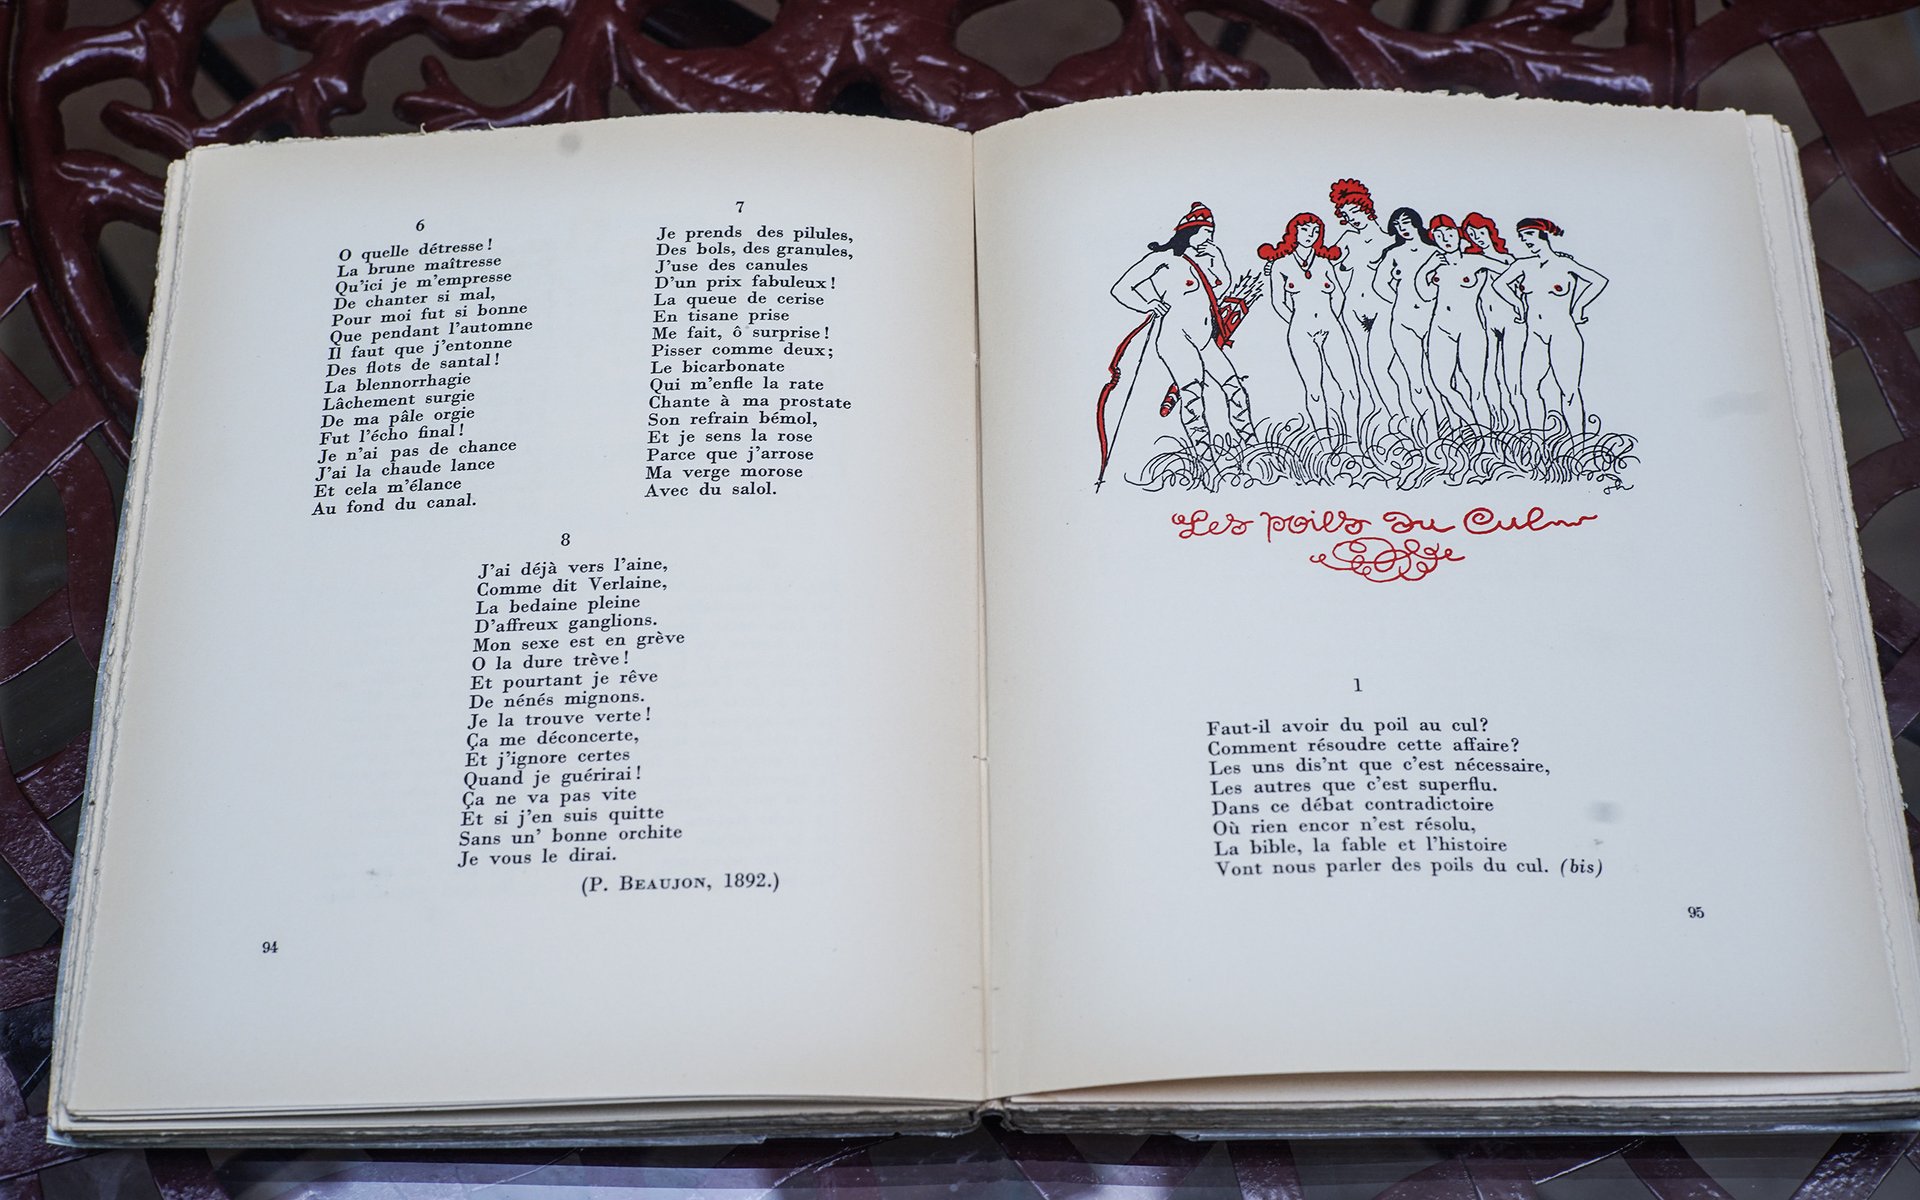 6
O quelle détresse !
La brune maîtresse
Qu'ici je m'empresse
De chanter si mal,
Pour moi fut si bonne
Que pendant l'automne
Il faut que j'entonne
Des flots de santal !
La blennorrhagie
Lâchement surgie
De ma pâle orgie
Fut l'écho final !
Je n'ai pas de chance
J'ai la chaude lance
Et cela m'élance
Au fond du canal.
7
Je prends des pilules,
Des bols, des granules,
J'use des canules
D'un prix fabuleux !
La queue de cerise
En tisane prise
Me fait, ô surprise !
Pisser comme deux ;
Le bicarbonate
Qui m'enfle la rate
Chante à ma prostate
Son refrain bémol,
Et je sens la rose
Parce que j'arrose
Ma verge morose
Avec du salol.
8
J'ai déjà vers l'aine,
Comme dit Verlaine,
La bedaine pleine
D'affreux ganglions.
Mon sexe est en grève
O la dure trève !
Et pourtant je rêve
De nénés mignons.
Je la trouve verte !
Ça me déconcerte,
Et j'ignore certes
Quand je guérirai !
Ça ne va pas vite
Et si j'en suis quitte
Sans un' bonne orchite
Je vous le dirai.
(P. BEAUJON, 1892.)
94
Les poils du Cul
1
Faut-il avoir du poil au cul ?
Comment résoudre cette affaire ?
Les uns dis'nt que c'est nécessaire,
Les autres que c'est superflu.
Dans ce débat contradictoire
Où rien encor n'est résolu,
La bible, la fable et l'histoire
Vont nous parler des poils du cul. (bis)
95